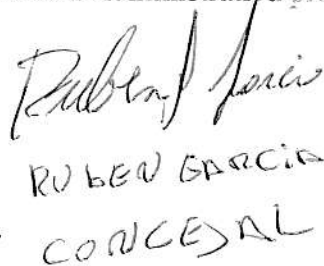 Ruben Garcia
RUBEN GARCIA
CONCEJAL